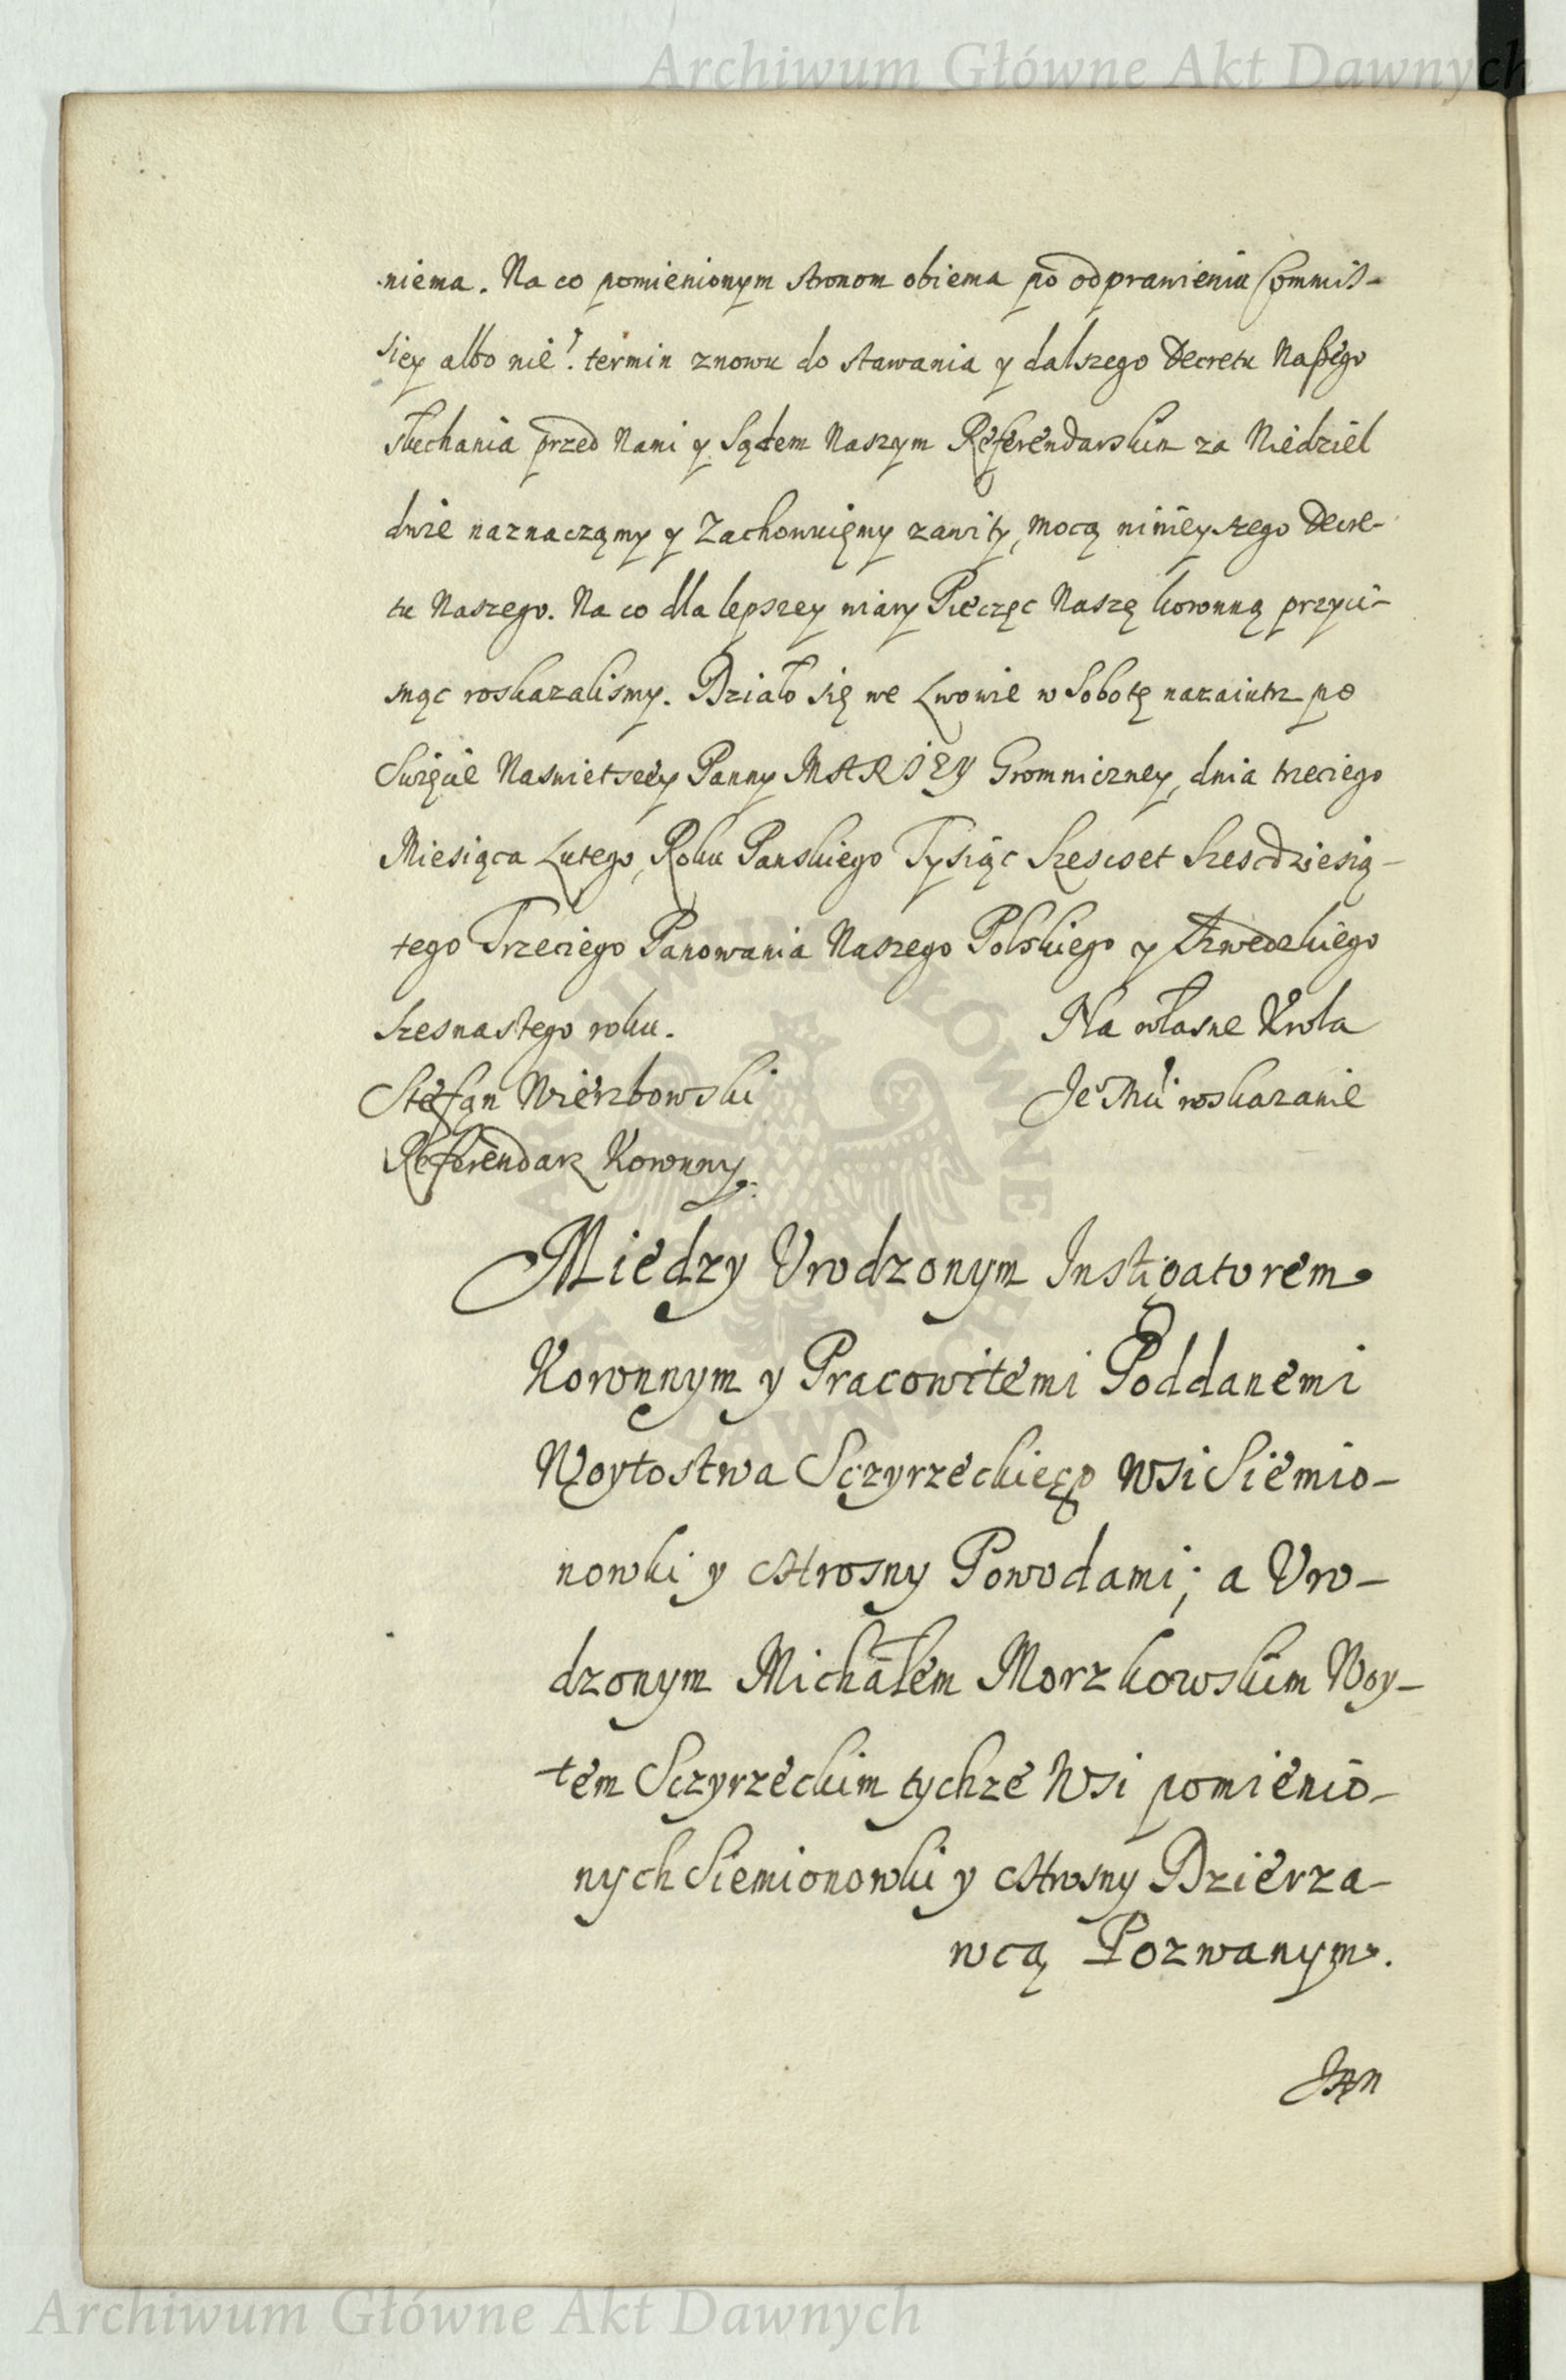 Archiwum Główne Akt Dawnych
niema. Na co pomienionym stronom obiema po odprawieniu Commis-
siey albo nie? termin znowu do stawania y dalszego Decretu Naßego
słuchania przed Nami y Sądem Naszym Referendarskim za Niedziel
dwie naznaczamy y Zachowuięmy zawity, mocą ninieyszego Decre-
tu Naszego. Na co dla lepszey wiary Pieczęc Naszę koronną przyci-
snąc roskazalismy. Działo się we Lwowie w Sobotę nazaiutrz po
Swięcie Naswietszey Panny MARIEY Gromniczney, dnia trzeciego
Miesiąca Lutego, Roku Panskiego Tysiąc Szescset Szescdziesią-
tego Trzeciego Panowania Naszego Polskiego y Szwedzkiego
szesnastego roku.
Na własne Krola
Stefan Wierzbowski
Je Mci roskazanie
Referendarz Koronny.
Miedzy Urodzonym Instigatorem
Koronnym y Pracowitemi Poddanemi
Woytostwa Sczyrzeckiego Wsi Siemio-
nowki y Chrosny Powodami; a Uro-
dzonym Michałem Morzkowskim Woy-
tem Sczyrzeckim tychze Wsi pomienio-
nych Siemionowki y Chrosny Dzierza-
wcą Pozwanym.
Jan
ARCHIWUM GŁÓWNE AKT DAWNYCH
Archiwum Główne Akt Dawnych